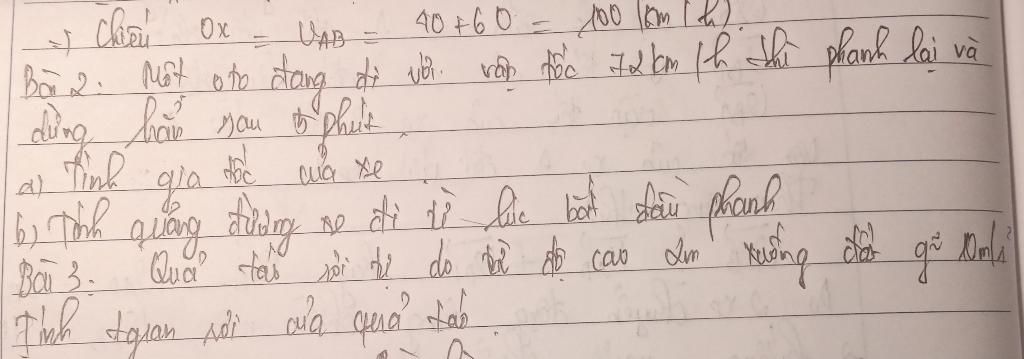 => Chiếu Ox = VAB = 40 + 60 = 100 (km/h)
Bài 2: Một oto đang đi với vận tốc 72km/h thì phanh lại và
dừng hẳn sau 5 phút.
a) Tính gia tốc của xe
b) Tính quãng đường xe đi từ lúc bắt đầu phanh
Bài 3: Quả táo rơi tự do từ độ cao 2m xuống đất g = 10m/s²
Tính tgian rơi của quả táo.